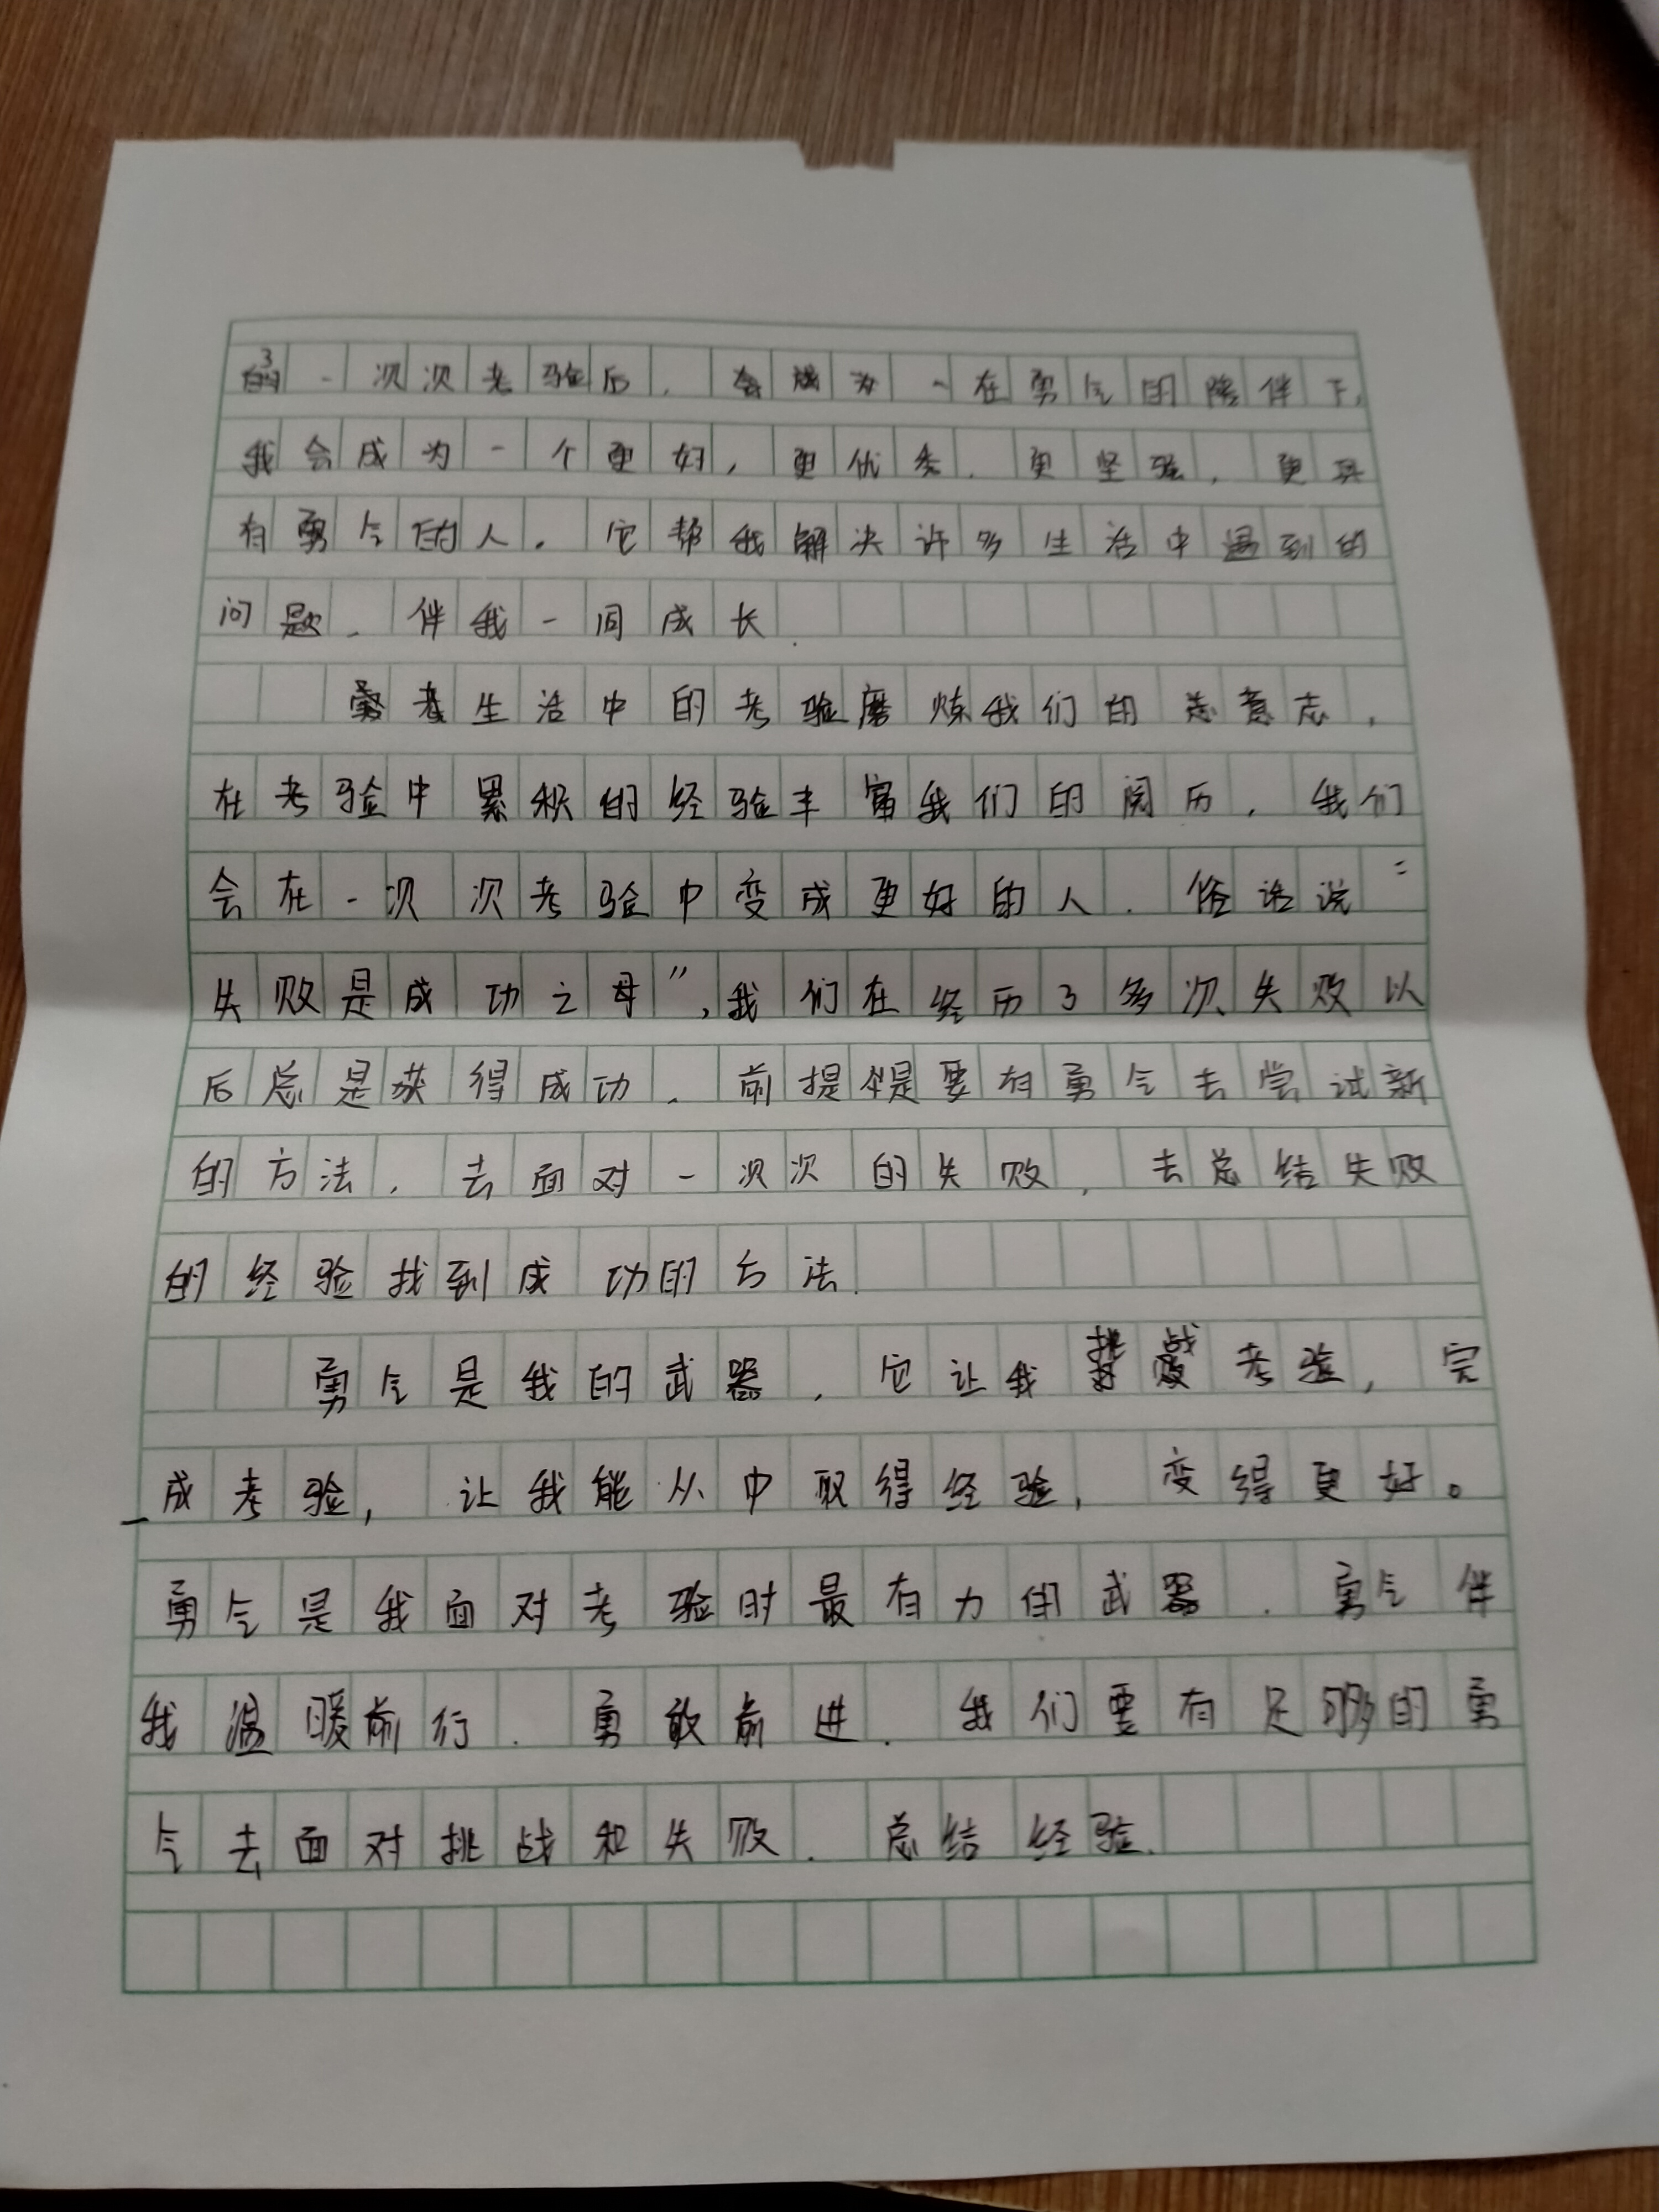 了一次次考验后，在勇气的陪伴下，
我会成为一个更好，更优秀，更坚强，更具
有勇气的人。它帮我解决许多生活中遇到的
问题，伴我一同成长.
生活中的考验磨炼我们的意志，
在考验中累积的经验丰富我们的阅历，我们
会在一次次考验中变成更好的人．俗话说“
失败是成功之母”，我们在经历了多次失败以
后总是获得成功，前提是要有勇气去尝试新
的方法，去面对一次次的失败，去总结失败
的经验找到成功的方法.
勇气是我的武器，它让我挑战考验，完
成考验，让我能从中取得经验，变得更好。
勇气是我面对考验时最有力的武器．勇气伴
我温暖前行．勇敢前进．我们要有足够的勇
气去面对挑战和失败．总结经验.